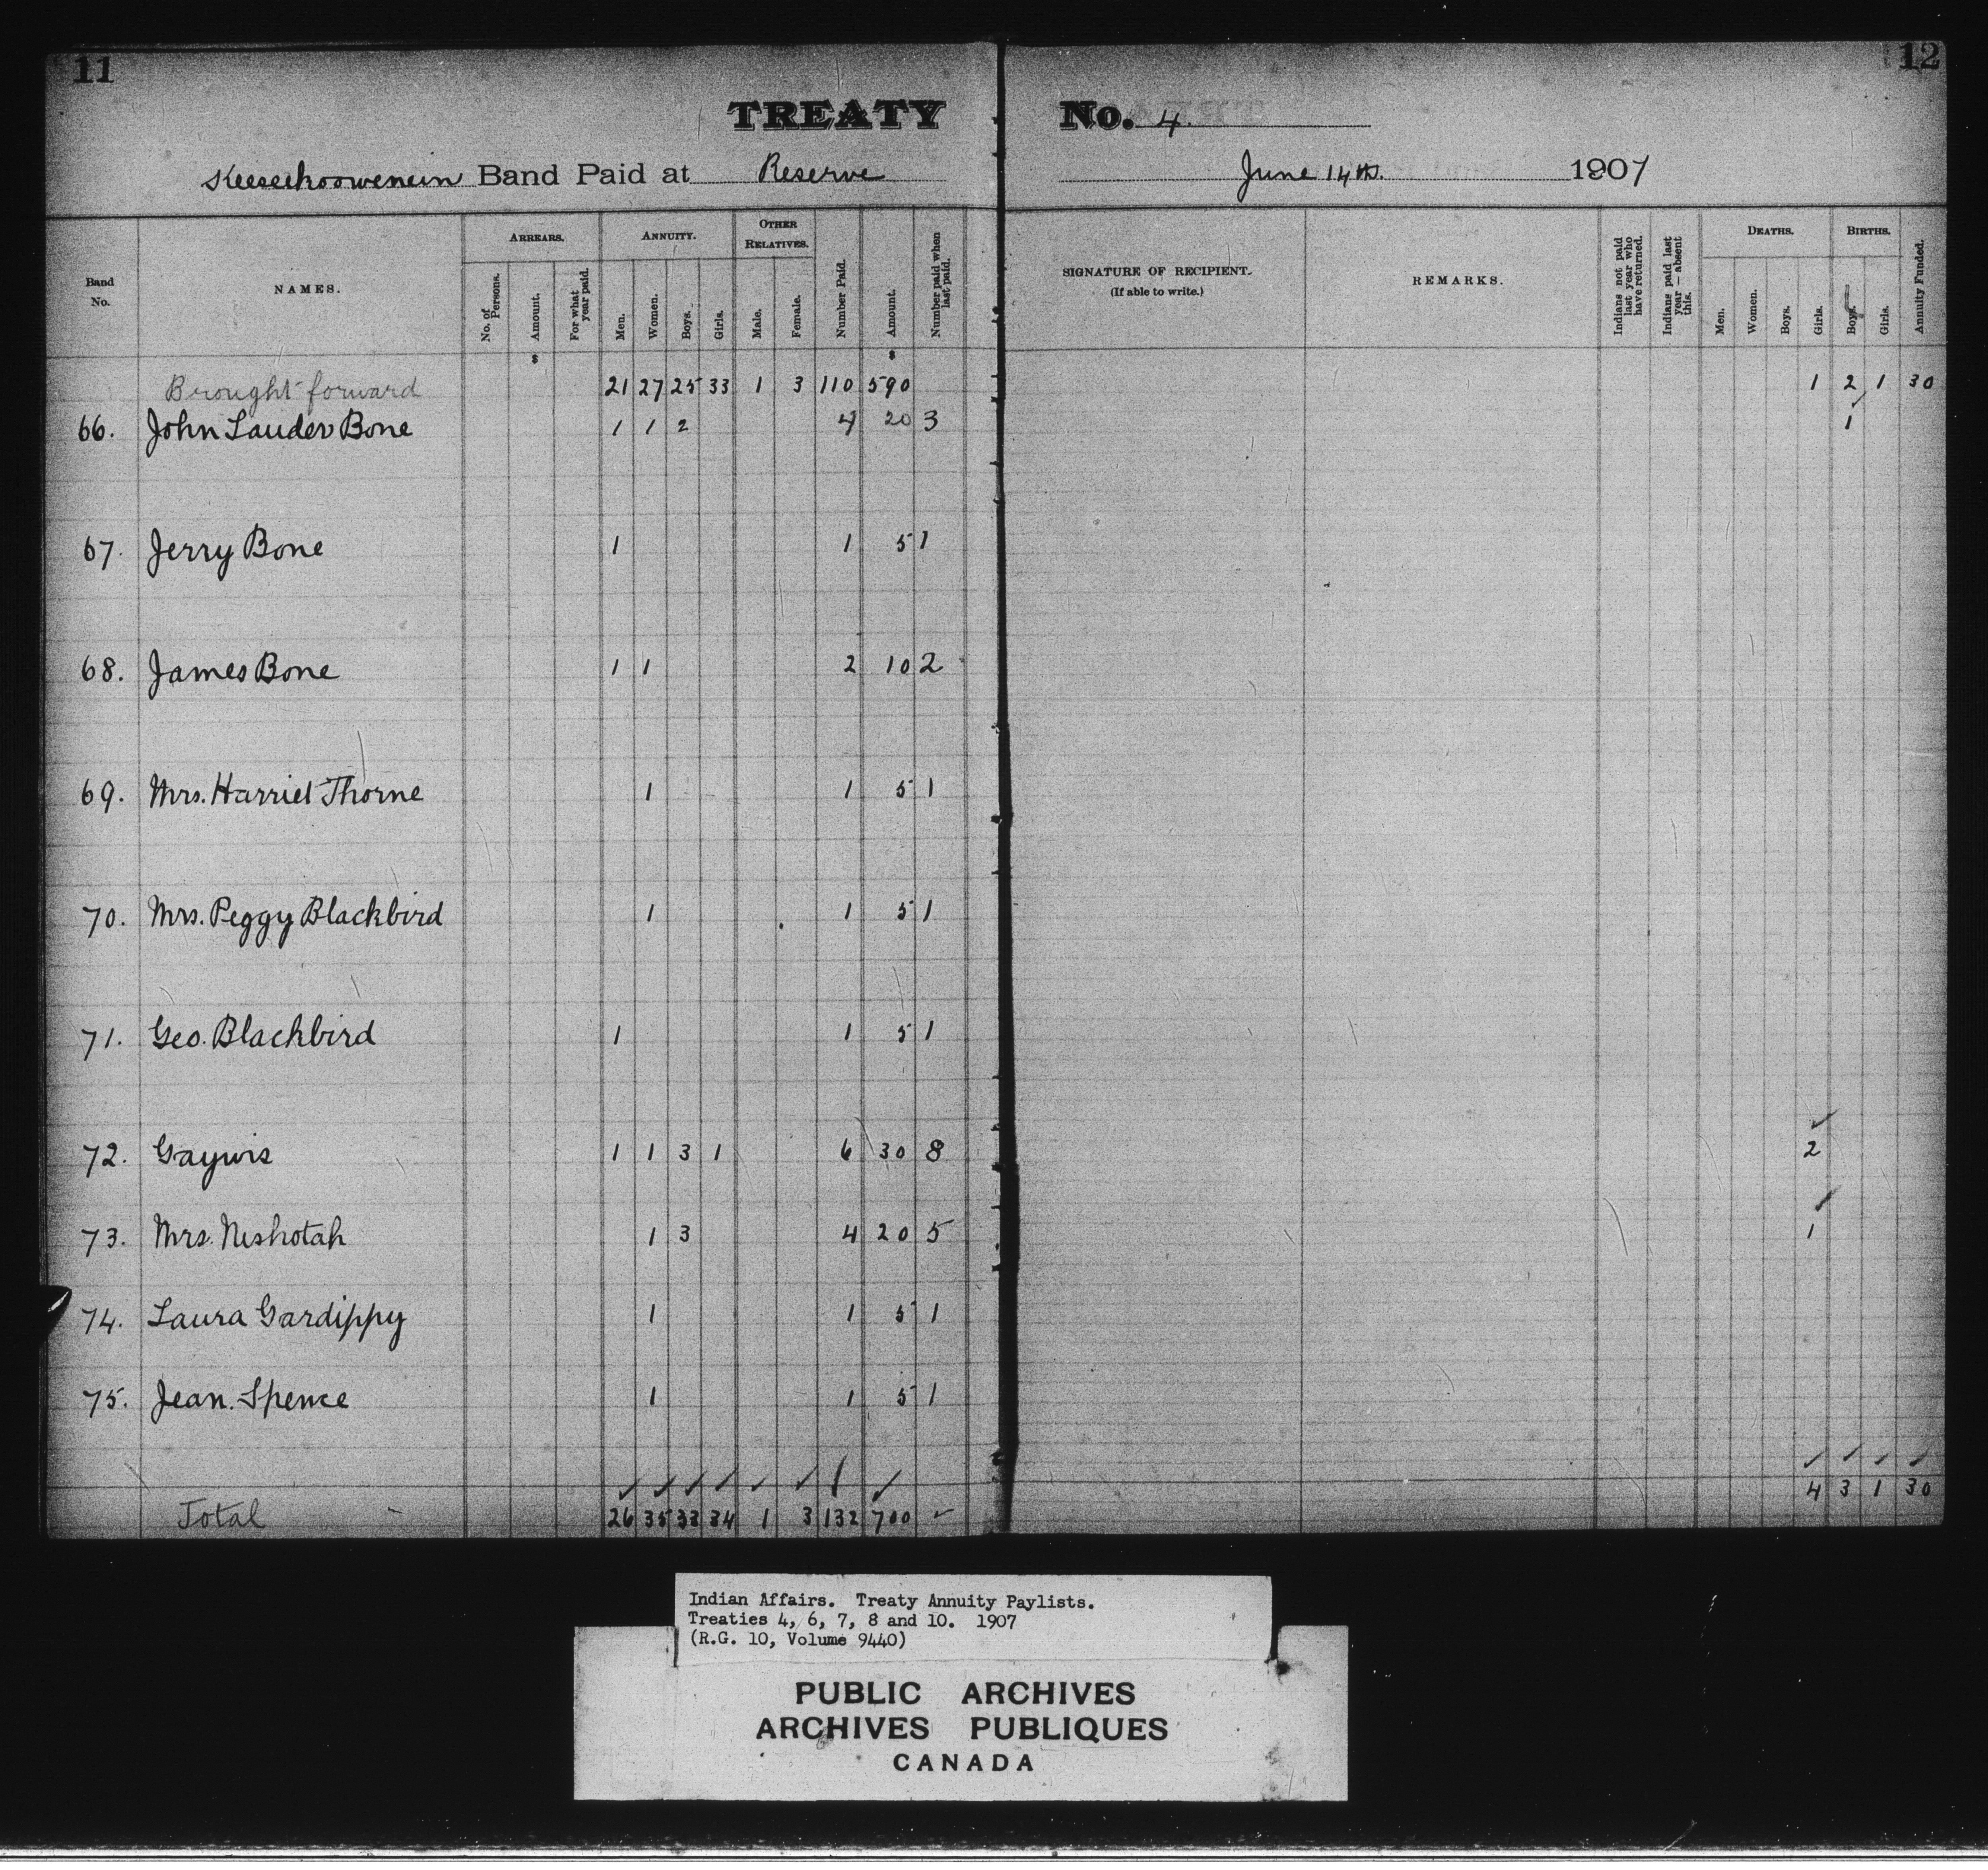 11
12
TREATY No. 4.
Keeseekoowenein Band Paid at Reserve June 14th. 1907
Band No. NAMES. ARREARS. No. of Persons. Amount. For what year paid. ANNUITY. Men. Women. Boys. Girls. OTHER RELATIVES. Male. Female. Number Paid. Amount. Number paid when last paid. SIGNATURE OF RECIPIENT. (If able to write.) REMARKS. Indians not paid last year who have returned. Indians paid last year — absent this. DEATHS. Men. Women. Boys. Girls. BIRTHS. Boys. Girls. Annuity Funded.
$ $
Brought forward 21 27 25 33 1 3 110 590 1 2 1 30
66. John Lauder Bone 1 1 2 4 20 3 1
67. Jerry Bone 1 1 5 1
68. James Bone 1 1 2 10 2
69. Mrs. Harriet Thorne 1 1 5 1
70. Mrs. Peggy Blackbird 1 1 5 1
71. Geo. Blackbird 1 1 5 1
72. Gaywis 1 1 3 1 6 30 8 2
73. Mrs. Neshotah 1 3 4 20 5 1
74. Laura Gardippy 1 1 5 1
75. Jean. Spence 1 1 5 1
4 3 1 30
Total 26 35 33 34 1 3 132 700
Indian Affairs. Treaty Annuity Paylists.
Treaties 4, 6, 7, 8 and 10. 1907
(R.G. 10, Volume 9440)
PUBLIC ARCHIVES
ARCHIVES PUBLIQUES
CANADA